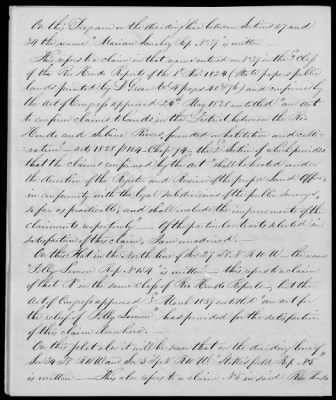 On this Diagram on the dividing line between Sections 27 and
34 the name "Mariano Sanchez Rep. No 27" is written.
This refers to a claim in that name entered No 27 in the 2d Class
of the Rio Hondo Reports of the 1st Nov 1824 (State papers public
lands printed by D Green Vol 4 pages 34 to 76) and confirmed by
the Act of Congress approved 24th May 1828 entitled "an act
to confirm claims to lands in the District between the Rio
Hondo and Sabine Rivers, founded on habitation and culti-
vation" the 2d Section of which provides
that the claims confirmed by the act "shall be located under
the direction of the Register and Receiver of the proper Land Office,
in conformity with the legal subdivisions of the public surveys,
so far as practicable, and shall include the improvements of the
claimants respectively — of the particular tracts selected in
satisfaction of this claim, I am unadvised.—
On this Plat in the North line of Sec 27 — the name
"Polly Lemon Rep. No 154" is written — this refers to a claim
of that No in the same class of Rio Hondo Reports, but the
Act of Congress approved 3 March entitled "an act for
the relief of Polly Lemon" has provided for the satisfaction
of this claim elsewhere.—
On this plat also it will be seen that on the dividing line of
Sec 34 and Sec 3 Rep. No 5"
is written — This also refers to a claim No 5 in said Rio Hondo